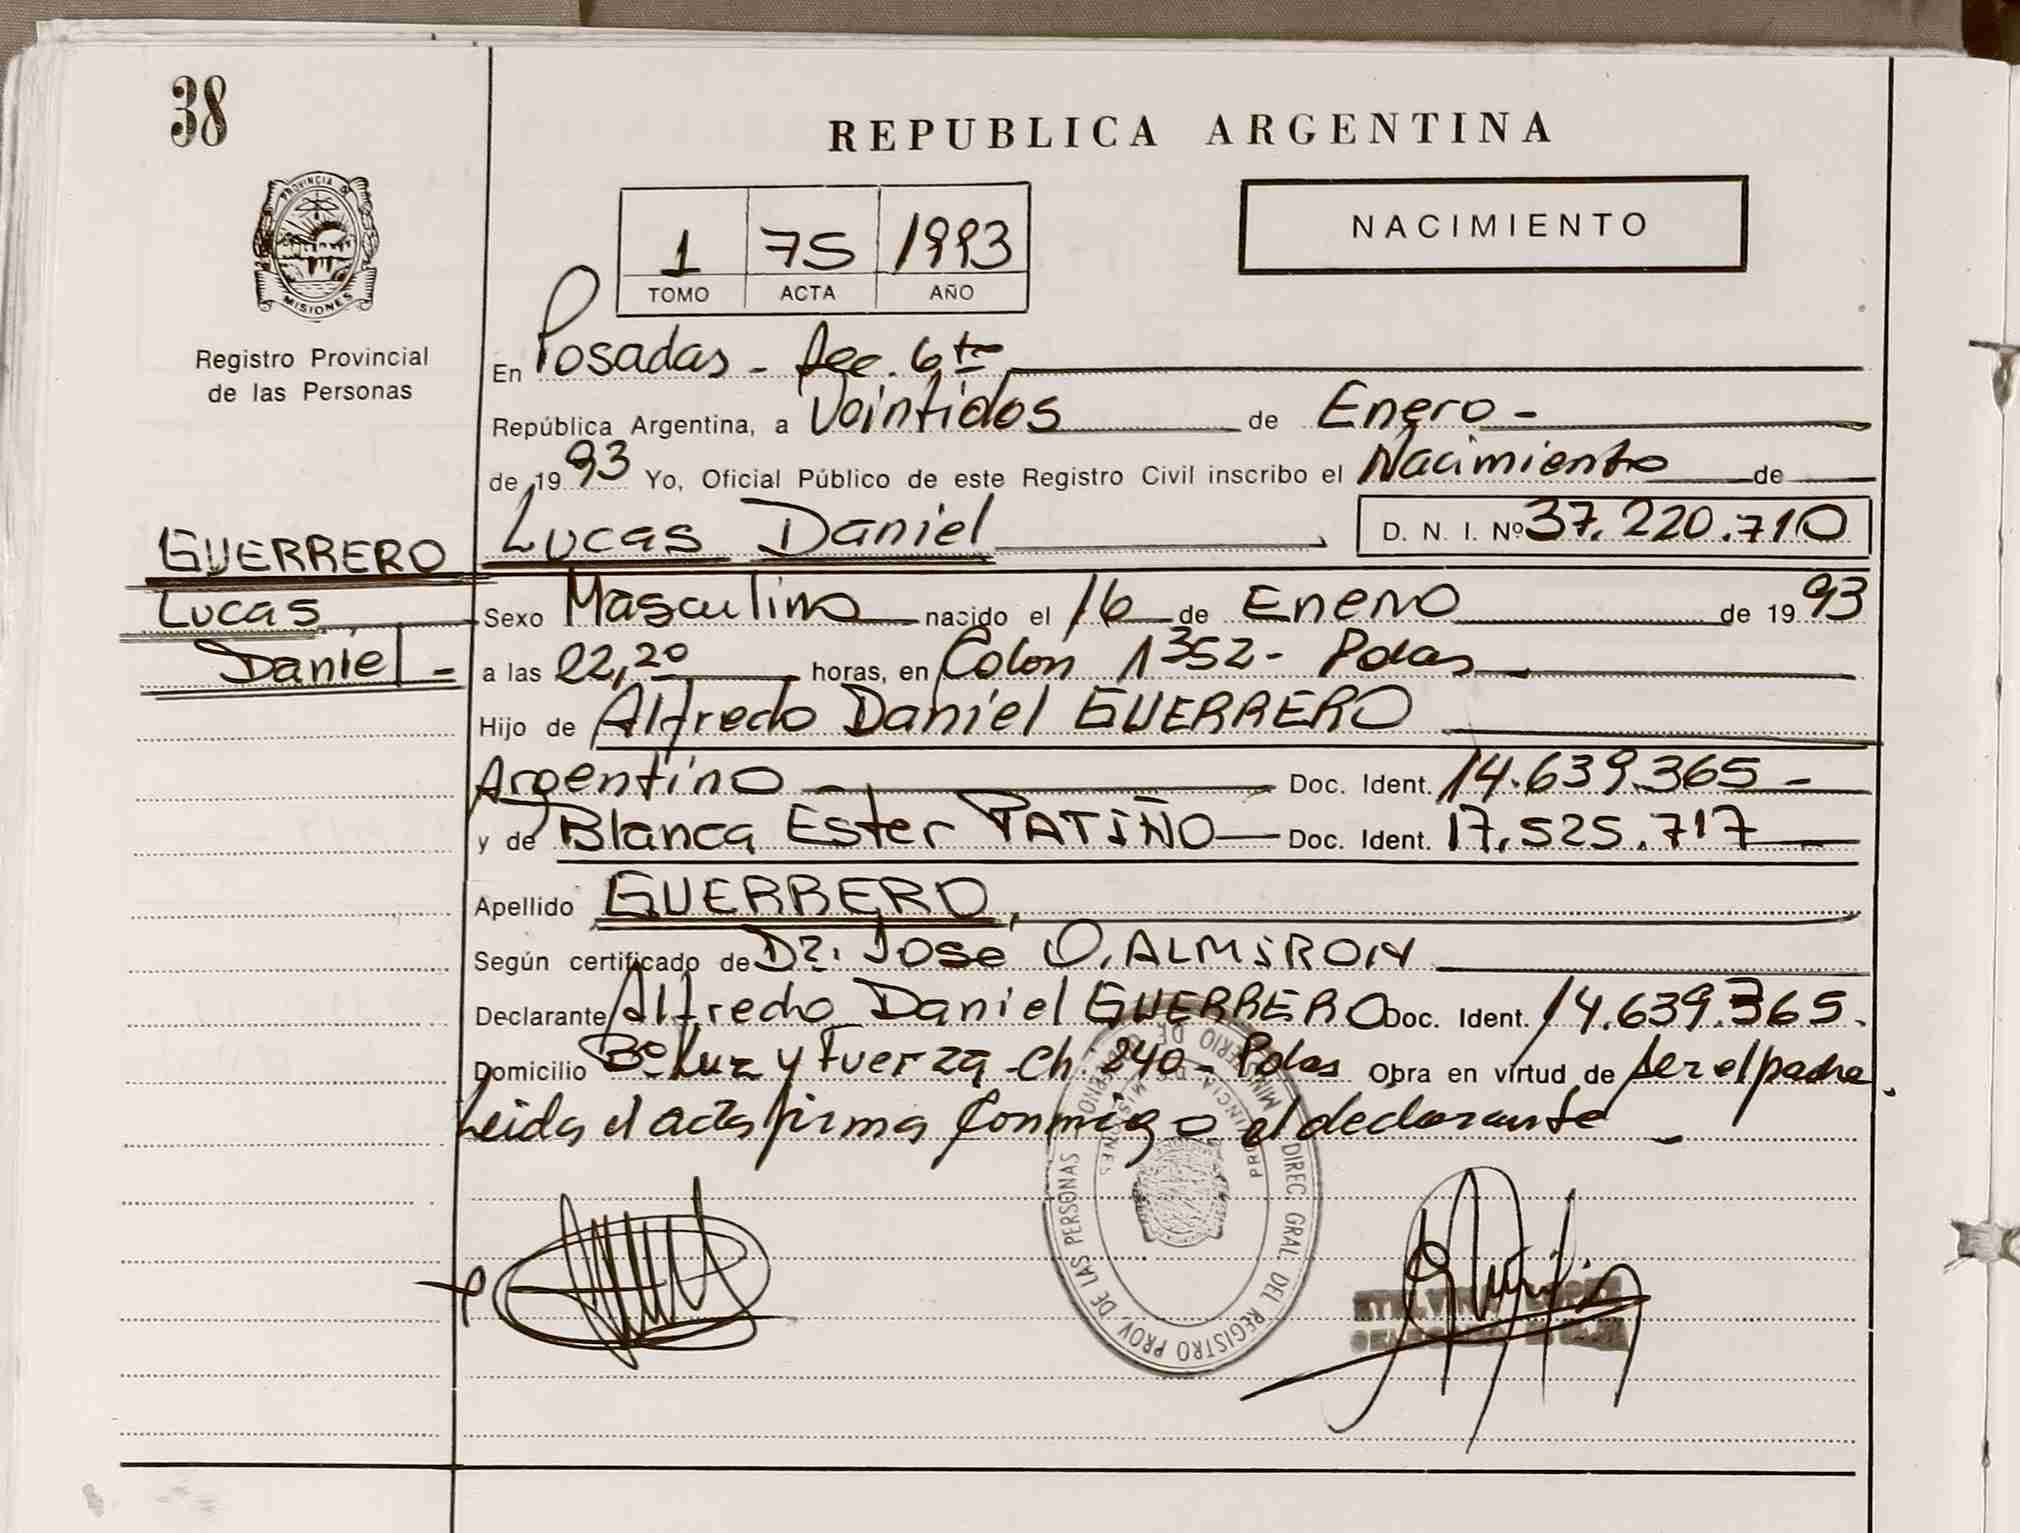 38
REPUBLICA ARGENTINA
NACIMIENTO
1 75 1993
TOMO ACTA AÑO
PROVINCIA DE MISIONES
Registro Provincial
de las Personas
En Posadas - Sec. 6ta
República Argentina, a Veintidos de Enero -
de 1993 Yo, Oficial Público de este Registro Civil inscribo el Nacimiento de
GUERRERO Lucas Daniel, D. N. I. Nº 37.220.710
Lucas
Daniel -
Sexo Masculino nacido el 16 de Enero de 1993
a las 22,20 horas, en Colon 1352 - Pdas
Hijo de Alfredo Daniel GUERRERO
Argentino Doc. Ident. 14.639.365 -
y de Blanca Ester PATIÑO Doc. Ident. 17.525.717
Apellido GUERRERO,
Según certificado de Dr. Jose O. ALMIRON
Declarante Alfredo Daniel GUERRERO Doc. Ident. 14.639.365.
Domicilio Bº Luz y Fuerza - Ch. 240 - Pdas Obra en virtud de ser el padre.
Leida el acta firma conmigo el declarante -
MINISTERIO DE GOBIERNO
DIREC. GRAL. DEL REGISTRO PROV. DE LAS PERSONAS
PROVINCIA DE MISIONES